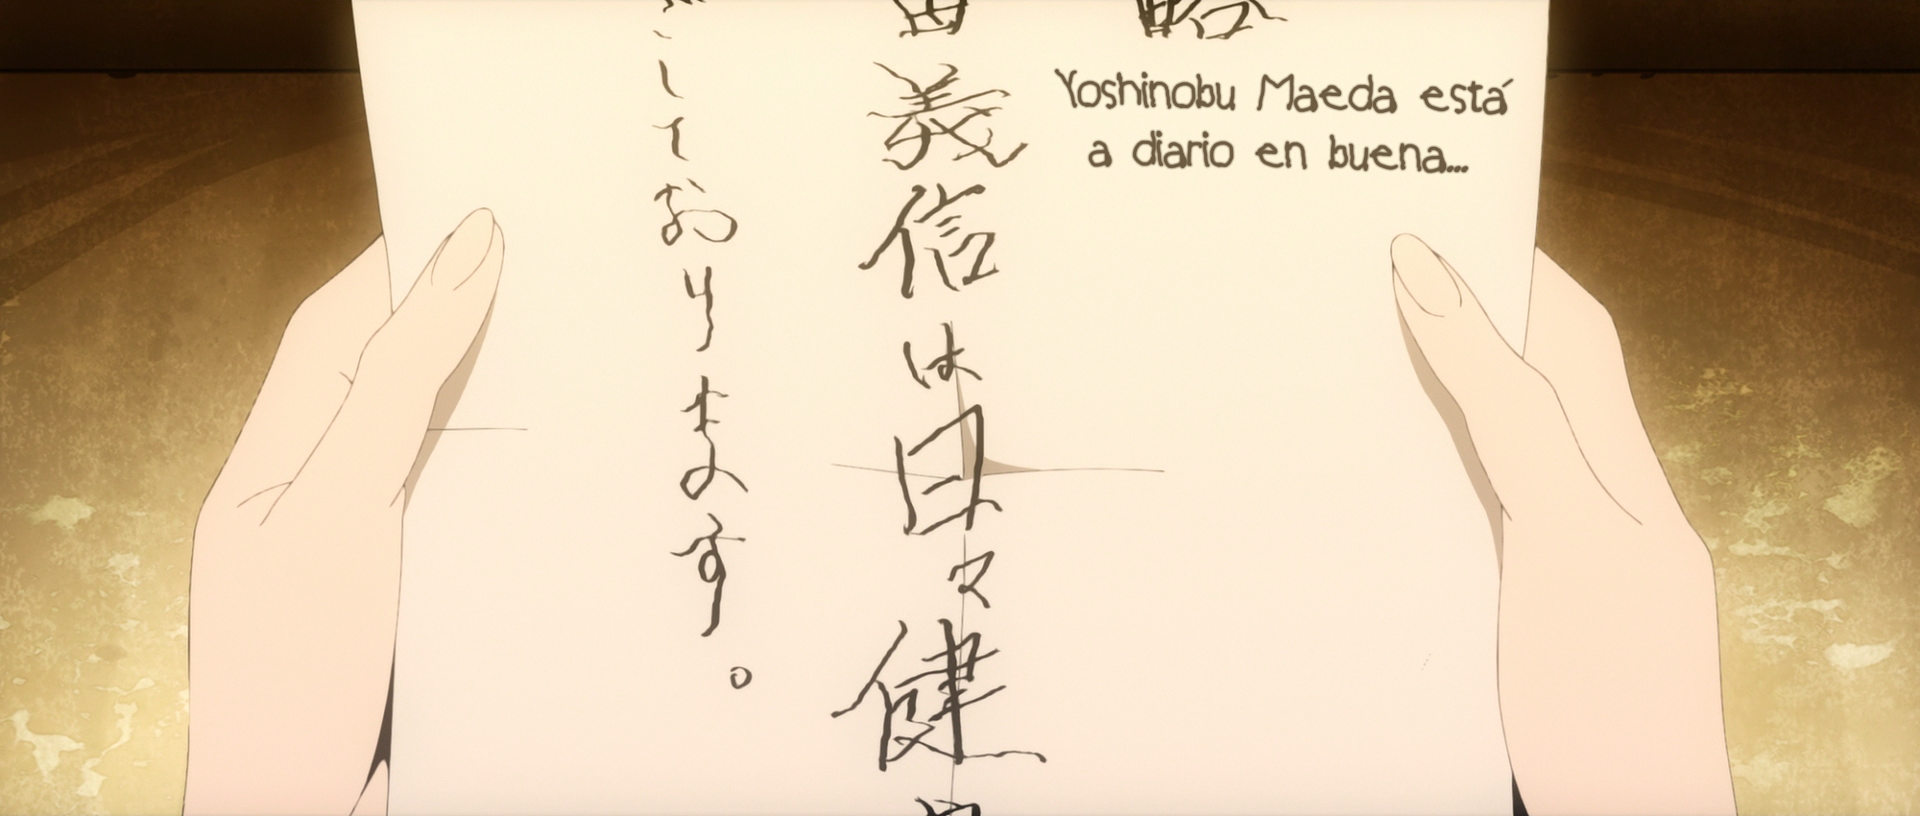 略
Yoshinobu Maeda está
a diario en buena...
田義信は日々健や
ごしております。